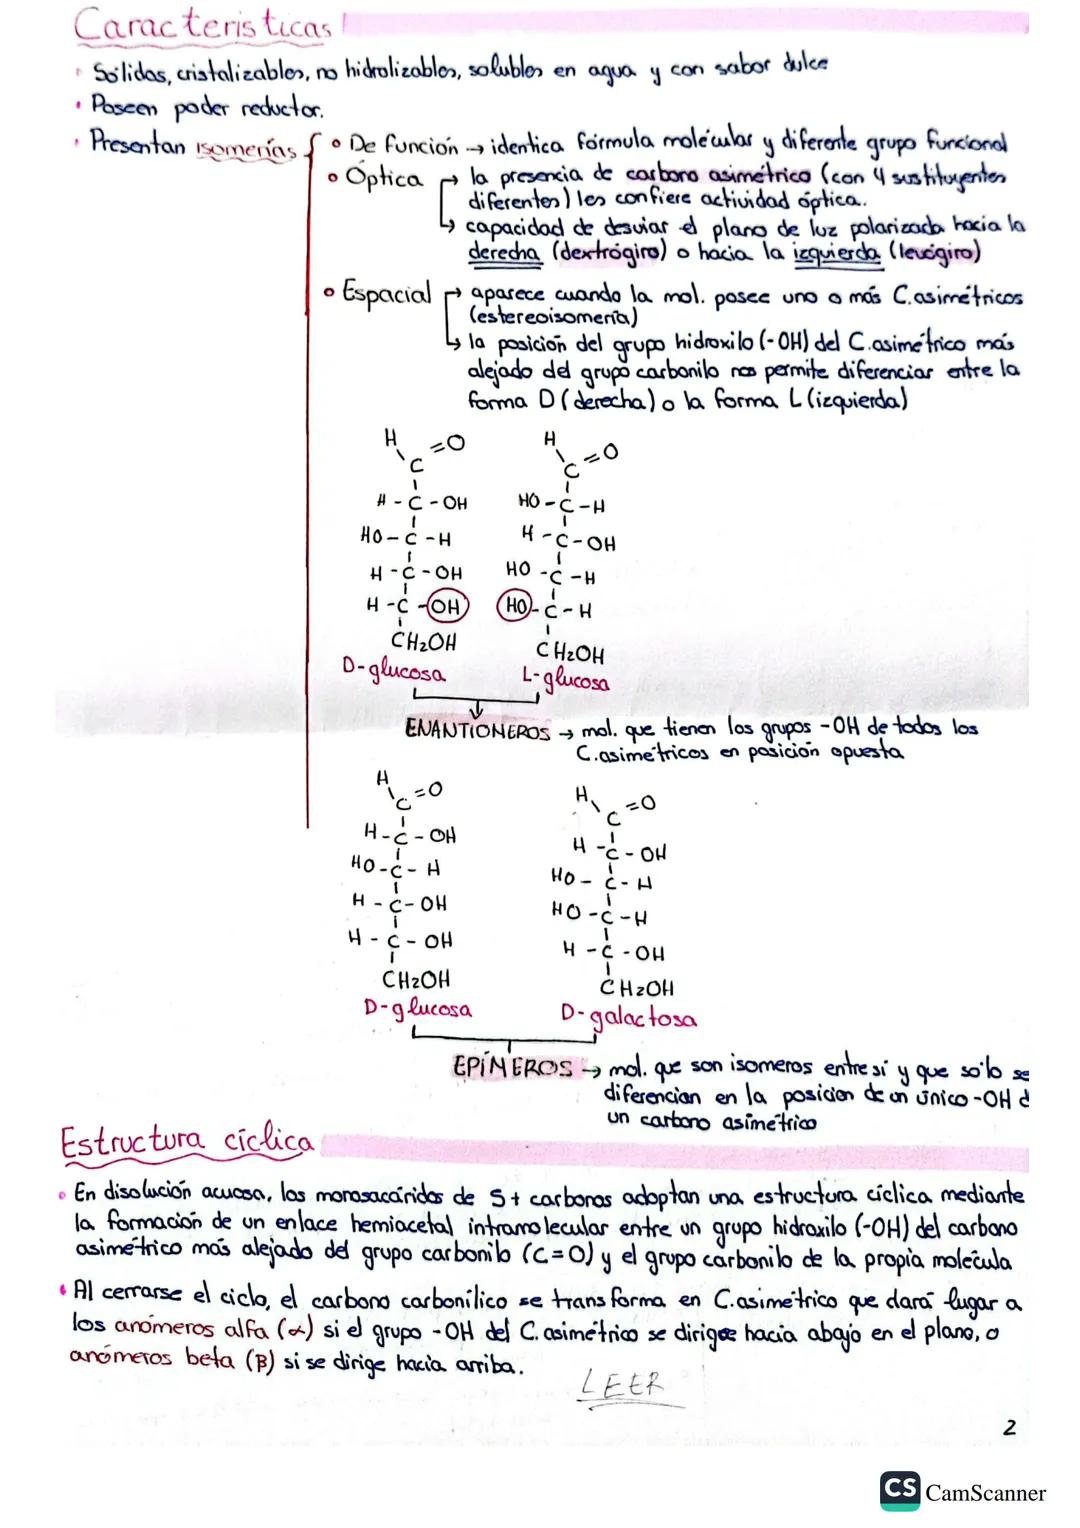 Caracteristicas
· Sólidos, cristalizables, no hidrolizables, solubles en agua y con sabor dulce
· Poseen poder reductor.
· Presentan isomerías
o De función → identica fórmula molécular y diferente grupo funcional
o Óptica → la presencia de carbono asimétrico (con 4 sustituyentes
diferentes) les confiere actividad óptica.
↳ capacidad de desviar el plano de luz polarizada hacia la
derecha (dextrógiro) o hacia la izquierda (levógiro)
o Espacial → aparece cuando la mol. posee uno o más C.asimétricos
(estereoisomería)
↳ la posición del grupo hidroxilo (-OH) del C.asimétrico más
alejado del grupo carbonilo nos permite diferenciar entre la
forma D (derecha) o la forma L (izquierda)
H =O H =O
C C
H - C - OH HO - C - H
HO - C - H H - C - OH
H - C - OH HO - C - H
H - C - OH HO - C - H
CH2OH CH2OH
D-glucosa L-glucosa
ENANTIONEROS → mol. que tienen los grupos -OH de todos los
C.asimétricos en posición opuesta
H =O H =O
C C
H - C - OH H - C - OH
HO - C - H HO - C - H
H - C - OH HO - C - H
H - C - OH H - C - OH
CH2OH CH2OH
D-glucosa D-galactosa
EPÍMEROS → mol. que son isomeros entre sí y que sólo se
diferencian en la posicion de un único -OH d
un carbono asimétrico
Estructura cíclica
· En disolución acuosa, los monosacáridos de 5+ carbonos adoptan una estructura cíclica mediante
la formación de un enlace hemiacetal intramolecular entre un grupo hidroxilo (-OH) del carbono
asimétrico más alejado del grupo carbonilo (C=O) y el grupo carbonilo de la propia molécula
· Al cerrarse el ciclo, el carbono carbonílico se transforma en C.asimétrico que dará lugar a
los anómeros alfa (α) si el grupo -OH del C. asimétrico se dirige hacia abajo en el plano, o
anómeros beta (β) si se dirige hacia arriba.
LEER
2
CS CamScanner